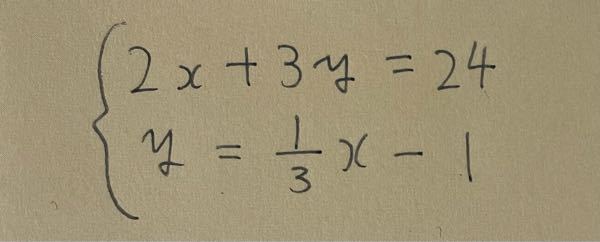 2x + 3y = 24
y = 1/3 x - 1